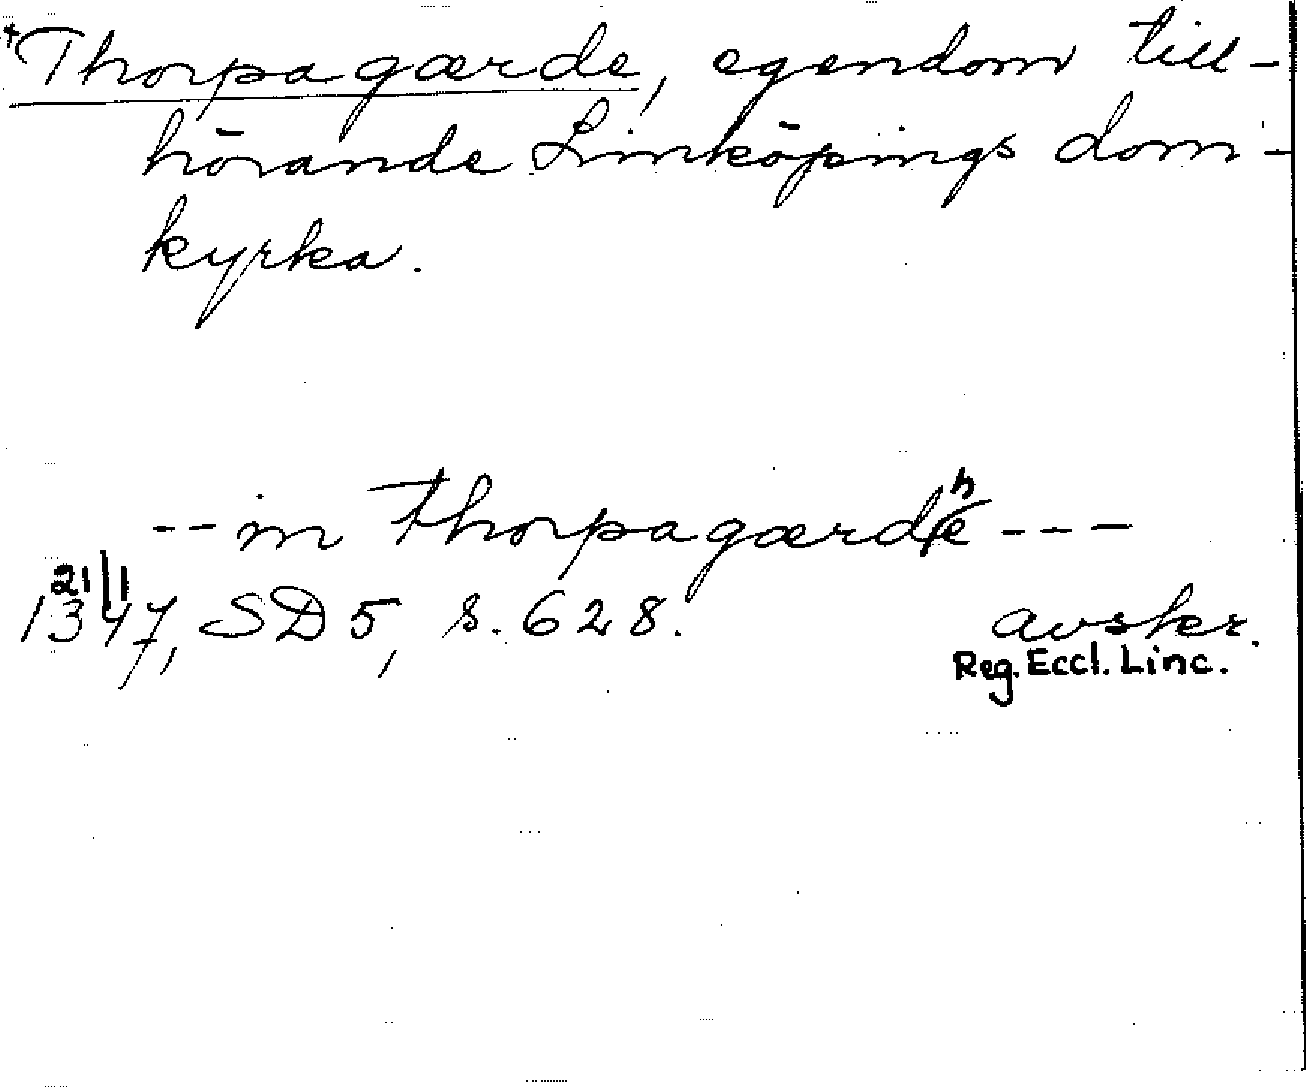 *Thorpagærde, egendom till-
hörande Linköpings dom-
kyrka.
-- in Thorpagærdhe ---
21/1
1347, SD 5, s. 628. avskr.
Reg. Eccl. Linc.